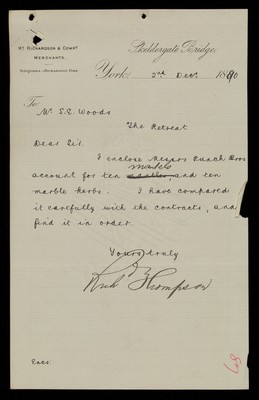 Skeldergate Bridge,
Mt. RICHARDSON & COMPY
MERCHANTS.
York, 2nd Decr. 1890
To
Mr S. S. Woods
The Retreat
Dear Sir.
I enclose Messrs Bros
mantels
account for ten and ten
marble kerbs. I have compared
it carefully with the contracts, and
find it in order.
Yours truly
Thompson
Encs.